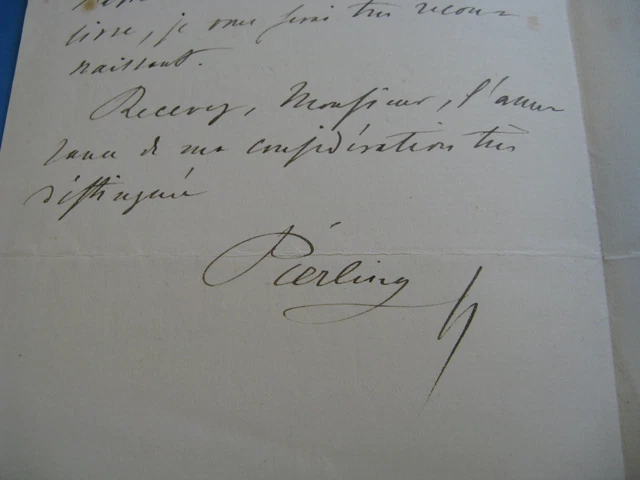 lisse, je vous serai très recon-
naissant.
Recevez, Monsieur, l'assu-
rance de ma considération très
distinguée
Pierling